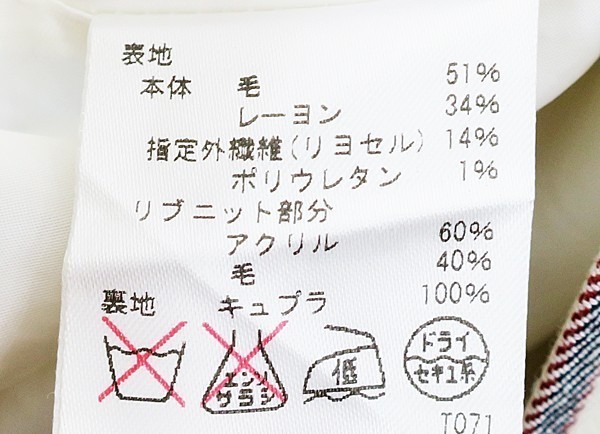 表地
本体 毛 51%
レーヨン 34%
指定外繊維(リヨセル) 14%
ポリウレタン 1%
リブニット部分
アクリル 60%
毛 40%
裏地 キュプラ 100%
エンソ
サラシ
低
ドライ
セキユ系
T071